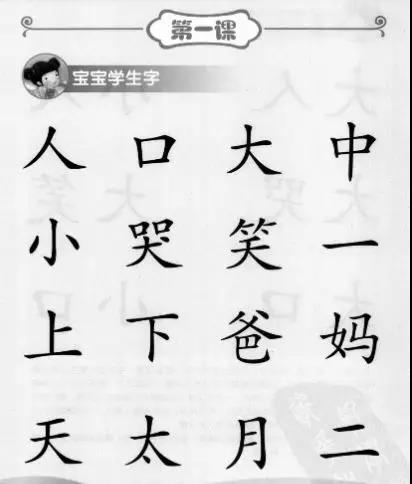 第一课
宝宝学生字
人 口 大 中
小 哭 笑 一
上 下 爸 妈
天 太 月 二